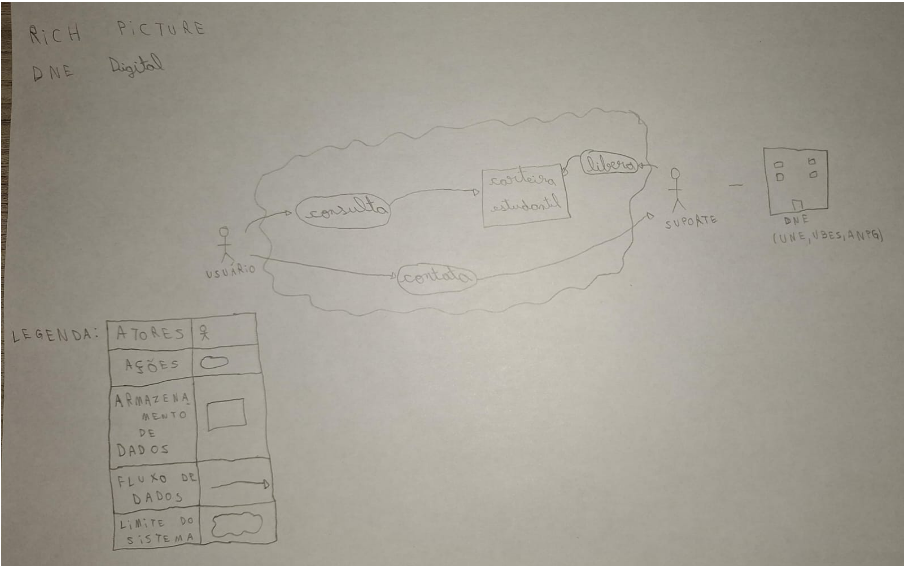 RICH PICTURE
DNE Digital
consulta
carteira
estudantil
libera
USUÁRIO
contata
SUPORTE
DNE
(UNE, UBES, ANPG)
LEGENDA:
ATORES
AÇÕES
ARMAZENA
MENTO
DE
DADOS
FLUXO DE
DADOS
LIMITE DO
SISTEMA